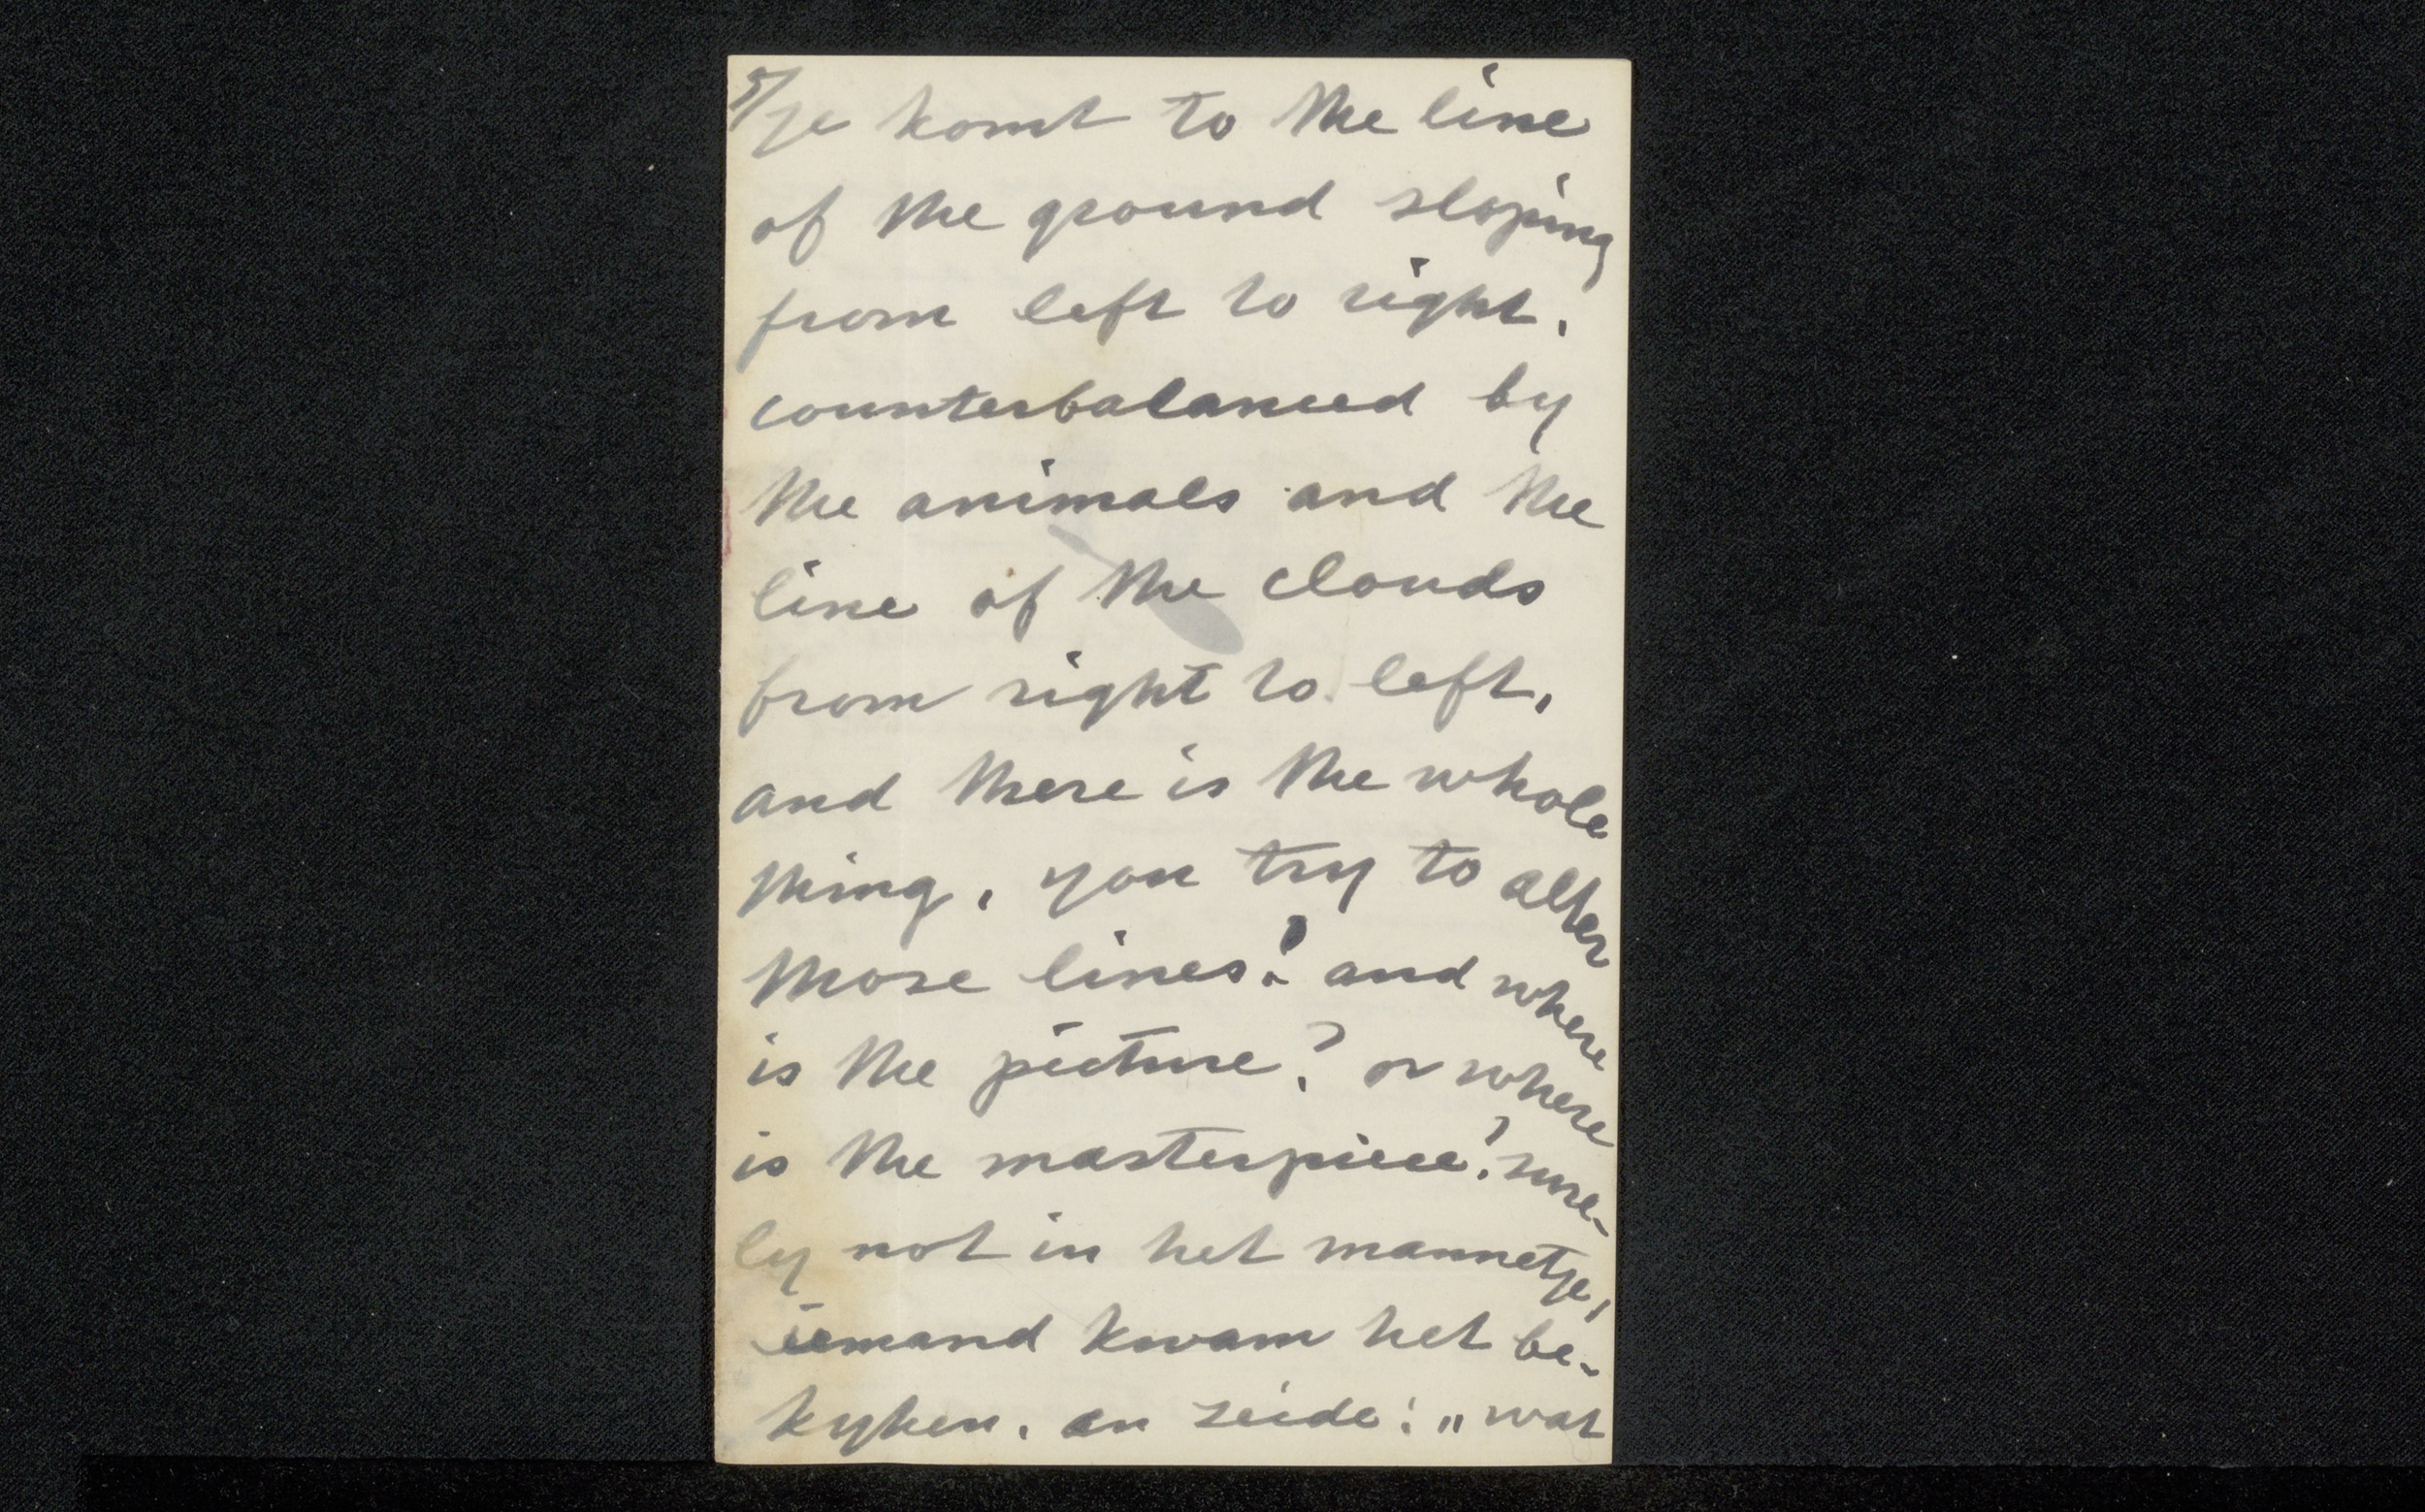 5/ je komt to the line
of the ground sloping
from left to right,
counterbalanced by
the animals and the
line of the clouds
from right to left,
and there is the whole
thing, you try to alter
those lines! and where
is the picture? or where
is the masterpiece? sure-
ly not in het mannetje,
iemand kwam het be-
kyken, en zeide: „wat